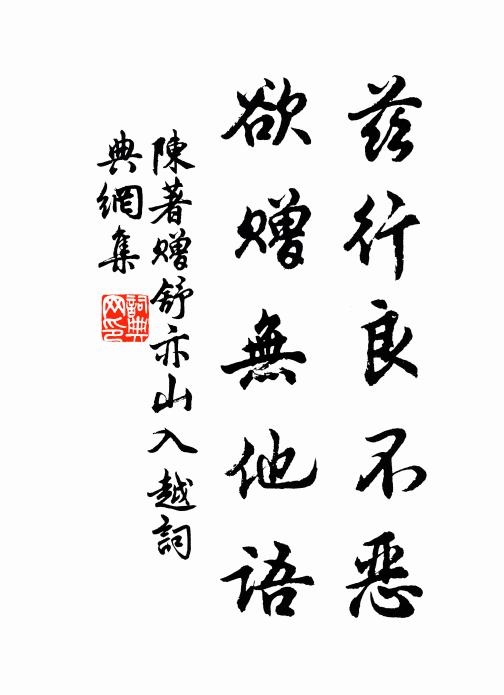 茲行良不恶
欲赠無他語
陳著赠舒亦山入越詞
典網集
詞典
网印